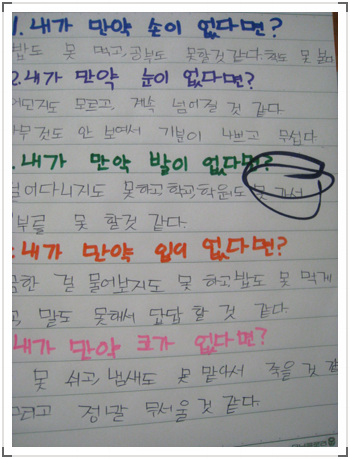 1. 내가 만약 손이 없다면?
밥도 못 먹고, 공부도 못할것 같다. 책도 못 본다.
2. 내가 만약 눈이 없다면?
모르고, 계속 넘어질 것 같다.
것도 안 보여서 기분이 나쁘고 무섭다.
내가 만약 발이 없다면?
걸어다니지도 못하고, 학교, 학원도 못 가서
못 할것 같다.
내가 만약 입이 없다면?
걸 물어보지도 못 하고 밥도 못 먹게
말도 못해서 답답 할 것 같다.
내가 만약 코가 없다면?
못 쉬고, 냄새도 못 맡아서 죽을 것 같
그리고 정말 무서울 것 같다.